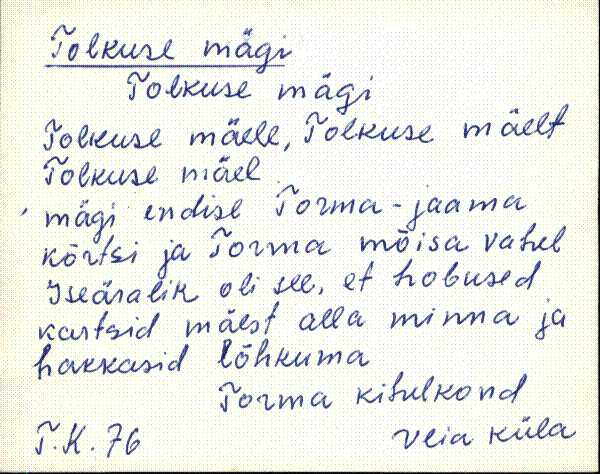 Tolkuse mägi
Tolkuse mägi
Tolkuse mäele, Tolkuse mäelt
Tolkuse mäel
mägi endise Torma-jaama
kõrtsi ja Torma mõisa vahel
Iseäralik oli see, et hobused
kartsid mäest alla minna ja
hakkasid lõhkuma
Torma kihelkond
T.K. 76 Veia küla